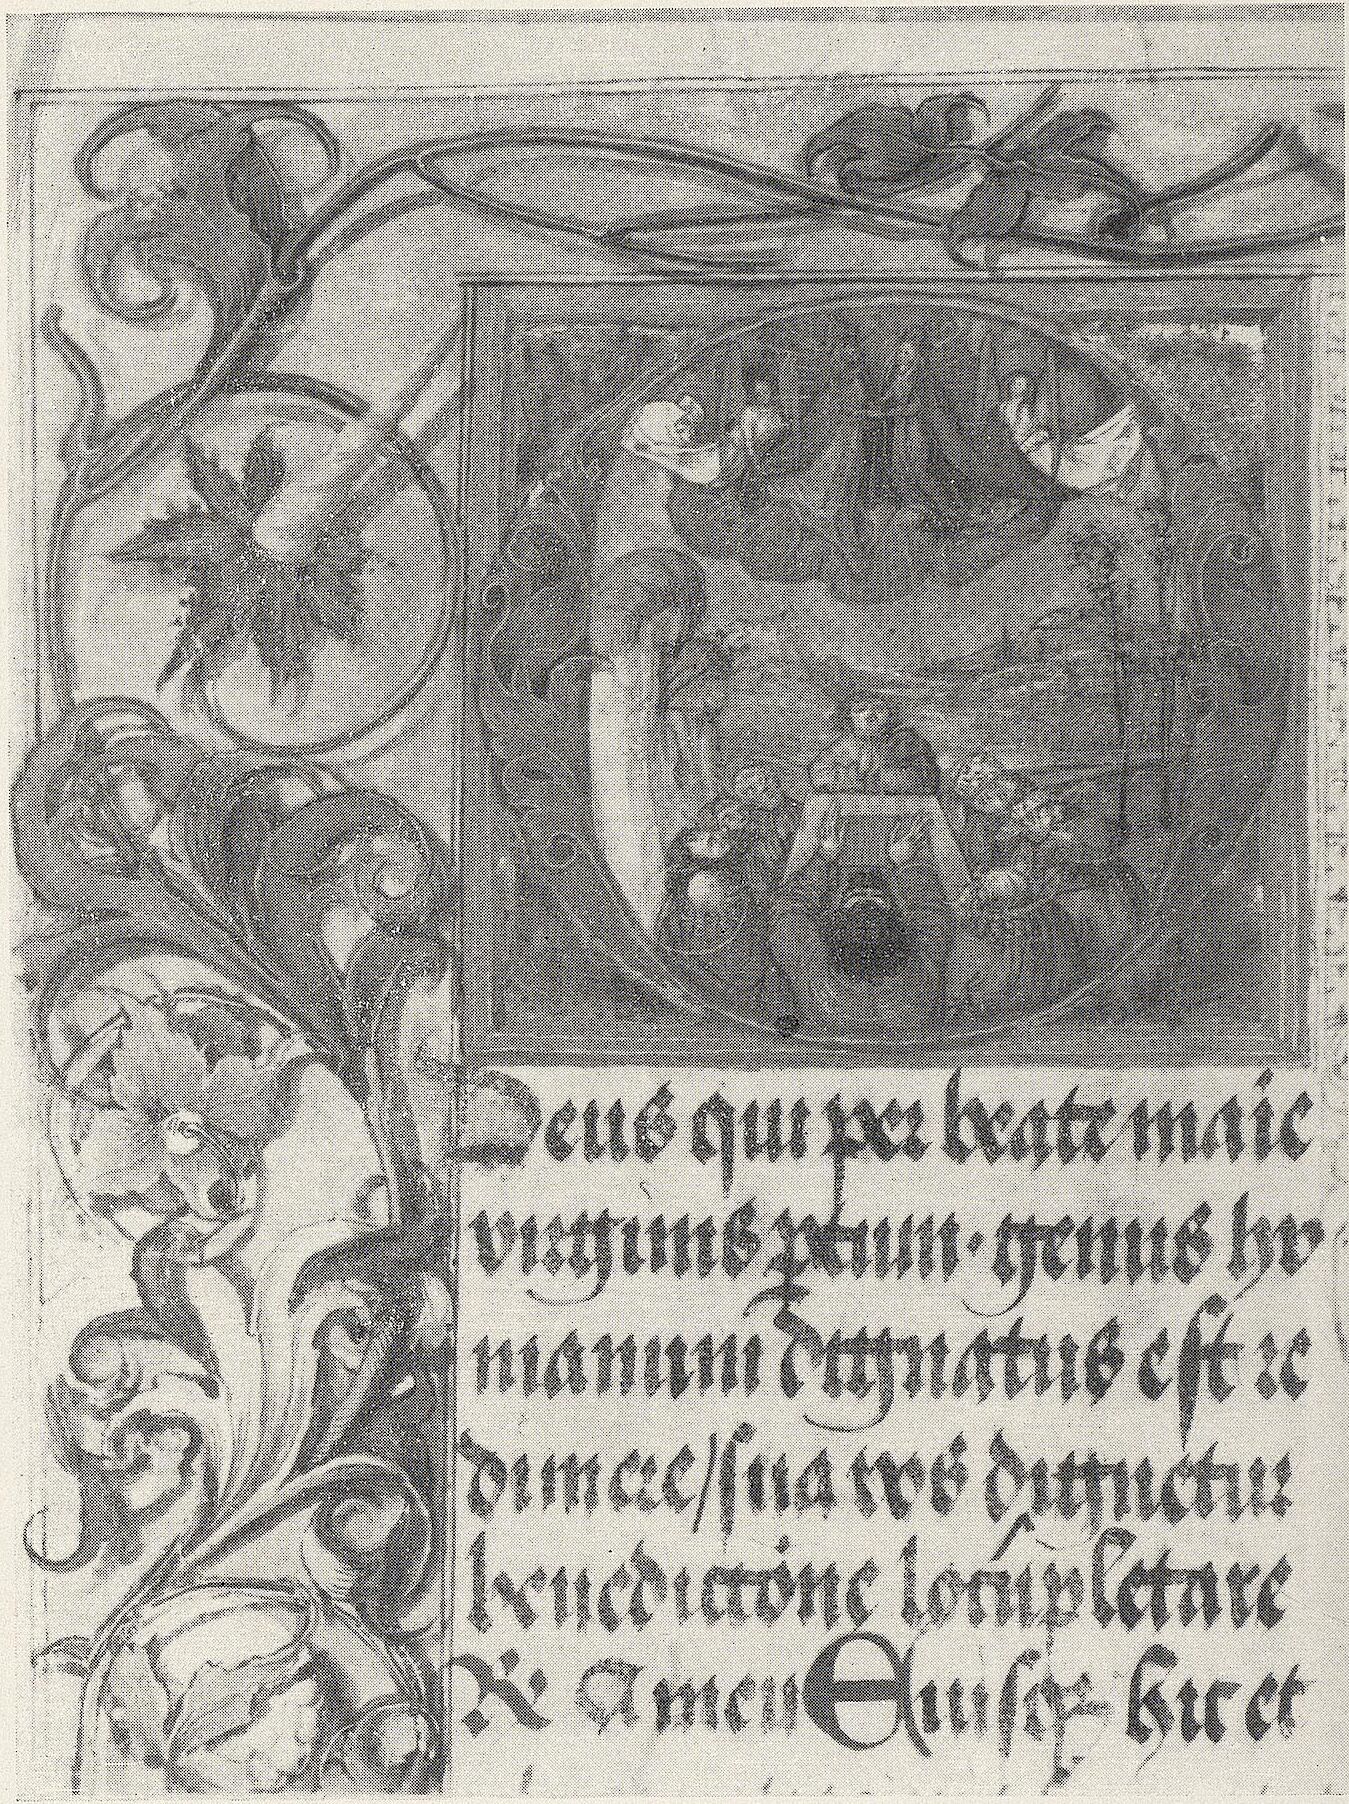 Deus qui per beate marie
virginis partum · genus hu
manum dignatus est re
dimere / sua vos dignetur
benedictione locupletare
℟ Amen Eiusque hic et